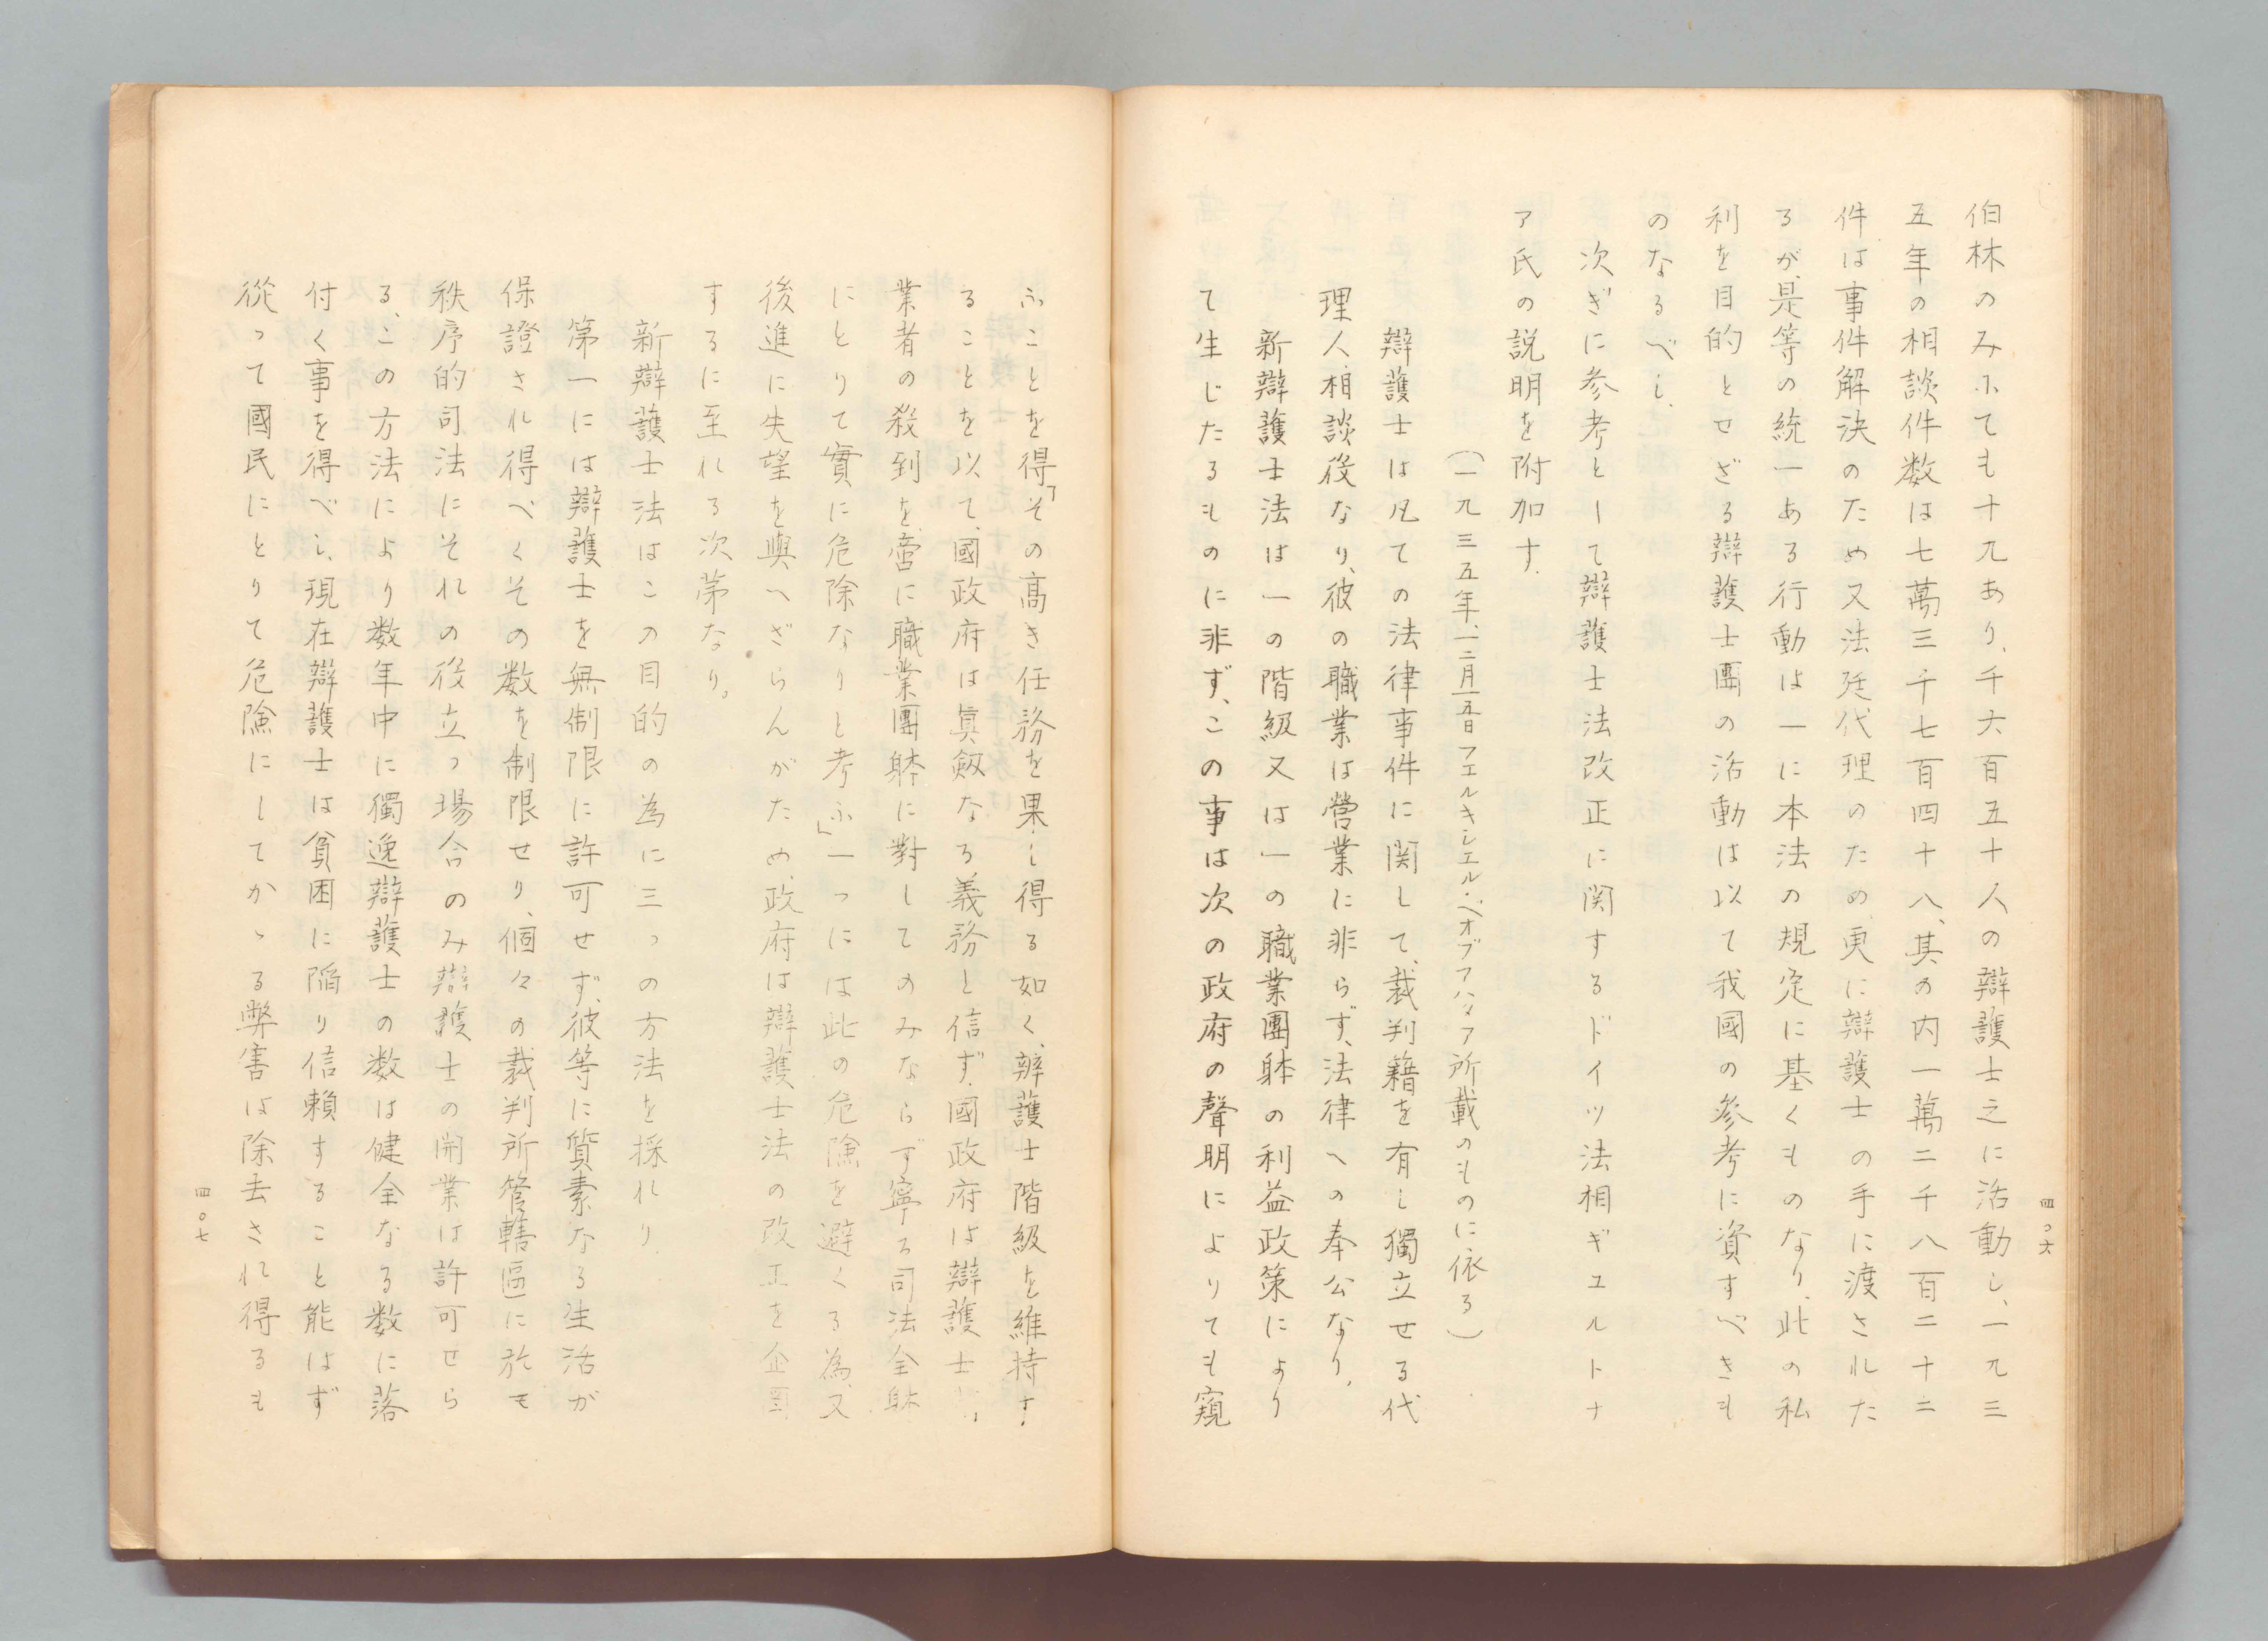 四〇六
伯林のみにても十九あり、千六百五十人の辯護士之に活動し、一九三
五年の相談件数は七萬三千七百四十八、其の内一萬二千八百二十二
件は事件解決のため又法廷代理のため、更に辯護士の手に渡された
るが、是等の統一ある行動は一に本法の規定に基くものなり、此の私
利を目的とせざる辯護士團の活動は以て我國の参考に資すべきも
のなるべし、
次ぎに参考として辯護士法改正に関するドイツ法相ギュルトナ
ア氏の説明を附加す.
(一九三五年、一二月一五日フエルキシエル・ベオブアハタア所載のものに依る)
辯護士は凡ての法律事件に関して、裁判籍を有し獨立せる代
理人、相談役なり、彼の職業は營業に非らず、法律への奉公なり、
新辯護士法は一の階級又は一の職業團躰の利益政策により
て生じたるものに非ず、この事は次の政府の聲明によりても窺
ふことを得「その高き任務を果し得る如く、辨護士階級を維持す
ることを以て、國政府は眞劔なる義務と信ず、國政府は辯護士
業者の殺到を、啻に職業團躰に對してのみならず寧ろ司法全躰
にとりて實に危除なりと考ふ」一つには此の危險を避くる為、又
後進に失望を與へざらんがため、政府は辯護士法の改正を企圖
するに至れる次第なり。
新辯護士法はこの目的の為に三つの方法を採れり.
第一には辯護士を無制限に許可せず、彼等に質素なる生活が
保證され得べくその数を制限せり、個々の裁判所管轄區に於も
秩序的司法にそれの役立つ場合のみ辯護士の開業は許可せら
る、この方法により数年中に獨逸辯護士の数は健全なる数に落
付く事を得べし、現在辯護士は貧困に陥り信頼すること能はず
從って國民にとりて危險にしてかゝる弊害は除去され得るも
四〇七